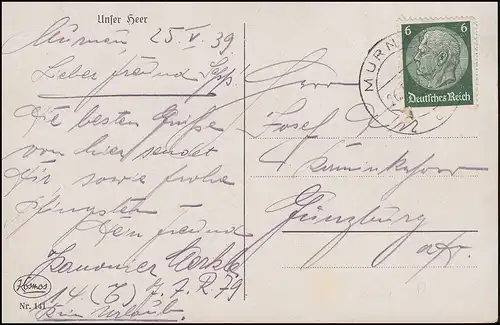 Unser Heer
Murnau 25.V.39.
Lieber Freund Sepp!
Die besten Grüße
von hier sendet
Dir, sowie frohe
Pfingsten
Dein Freund
Kanonier
14. (E) J. R. 79
Kosmos
Nr. 141
6 6
Deutsches Reich
MURN
Herrn
Josef
Kaminkehrer
Günzburg
a/D.